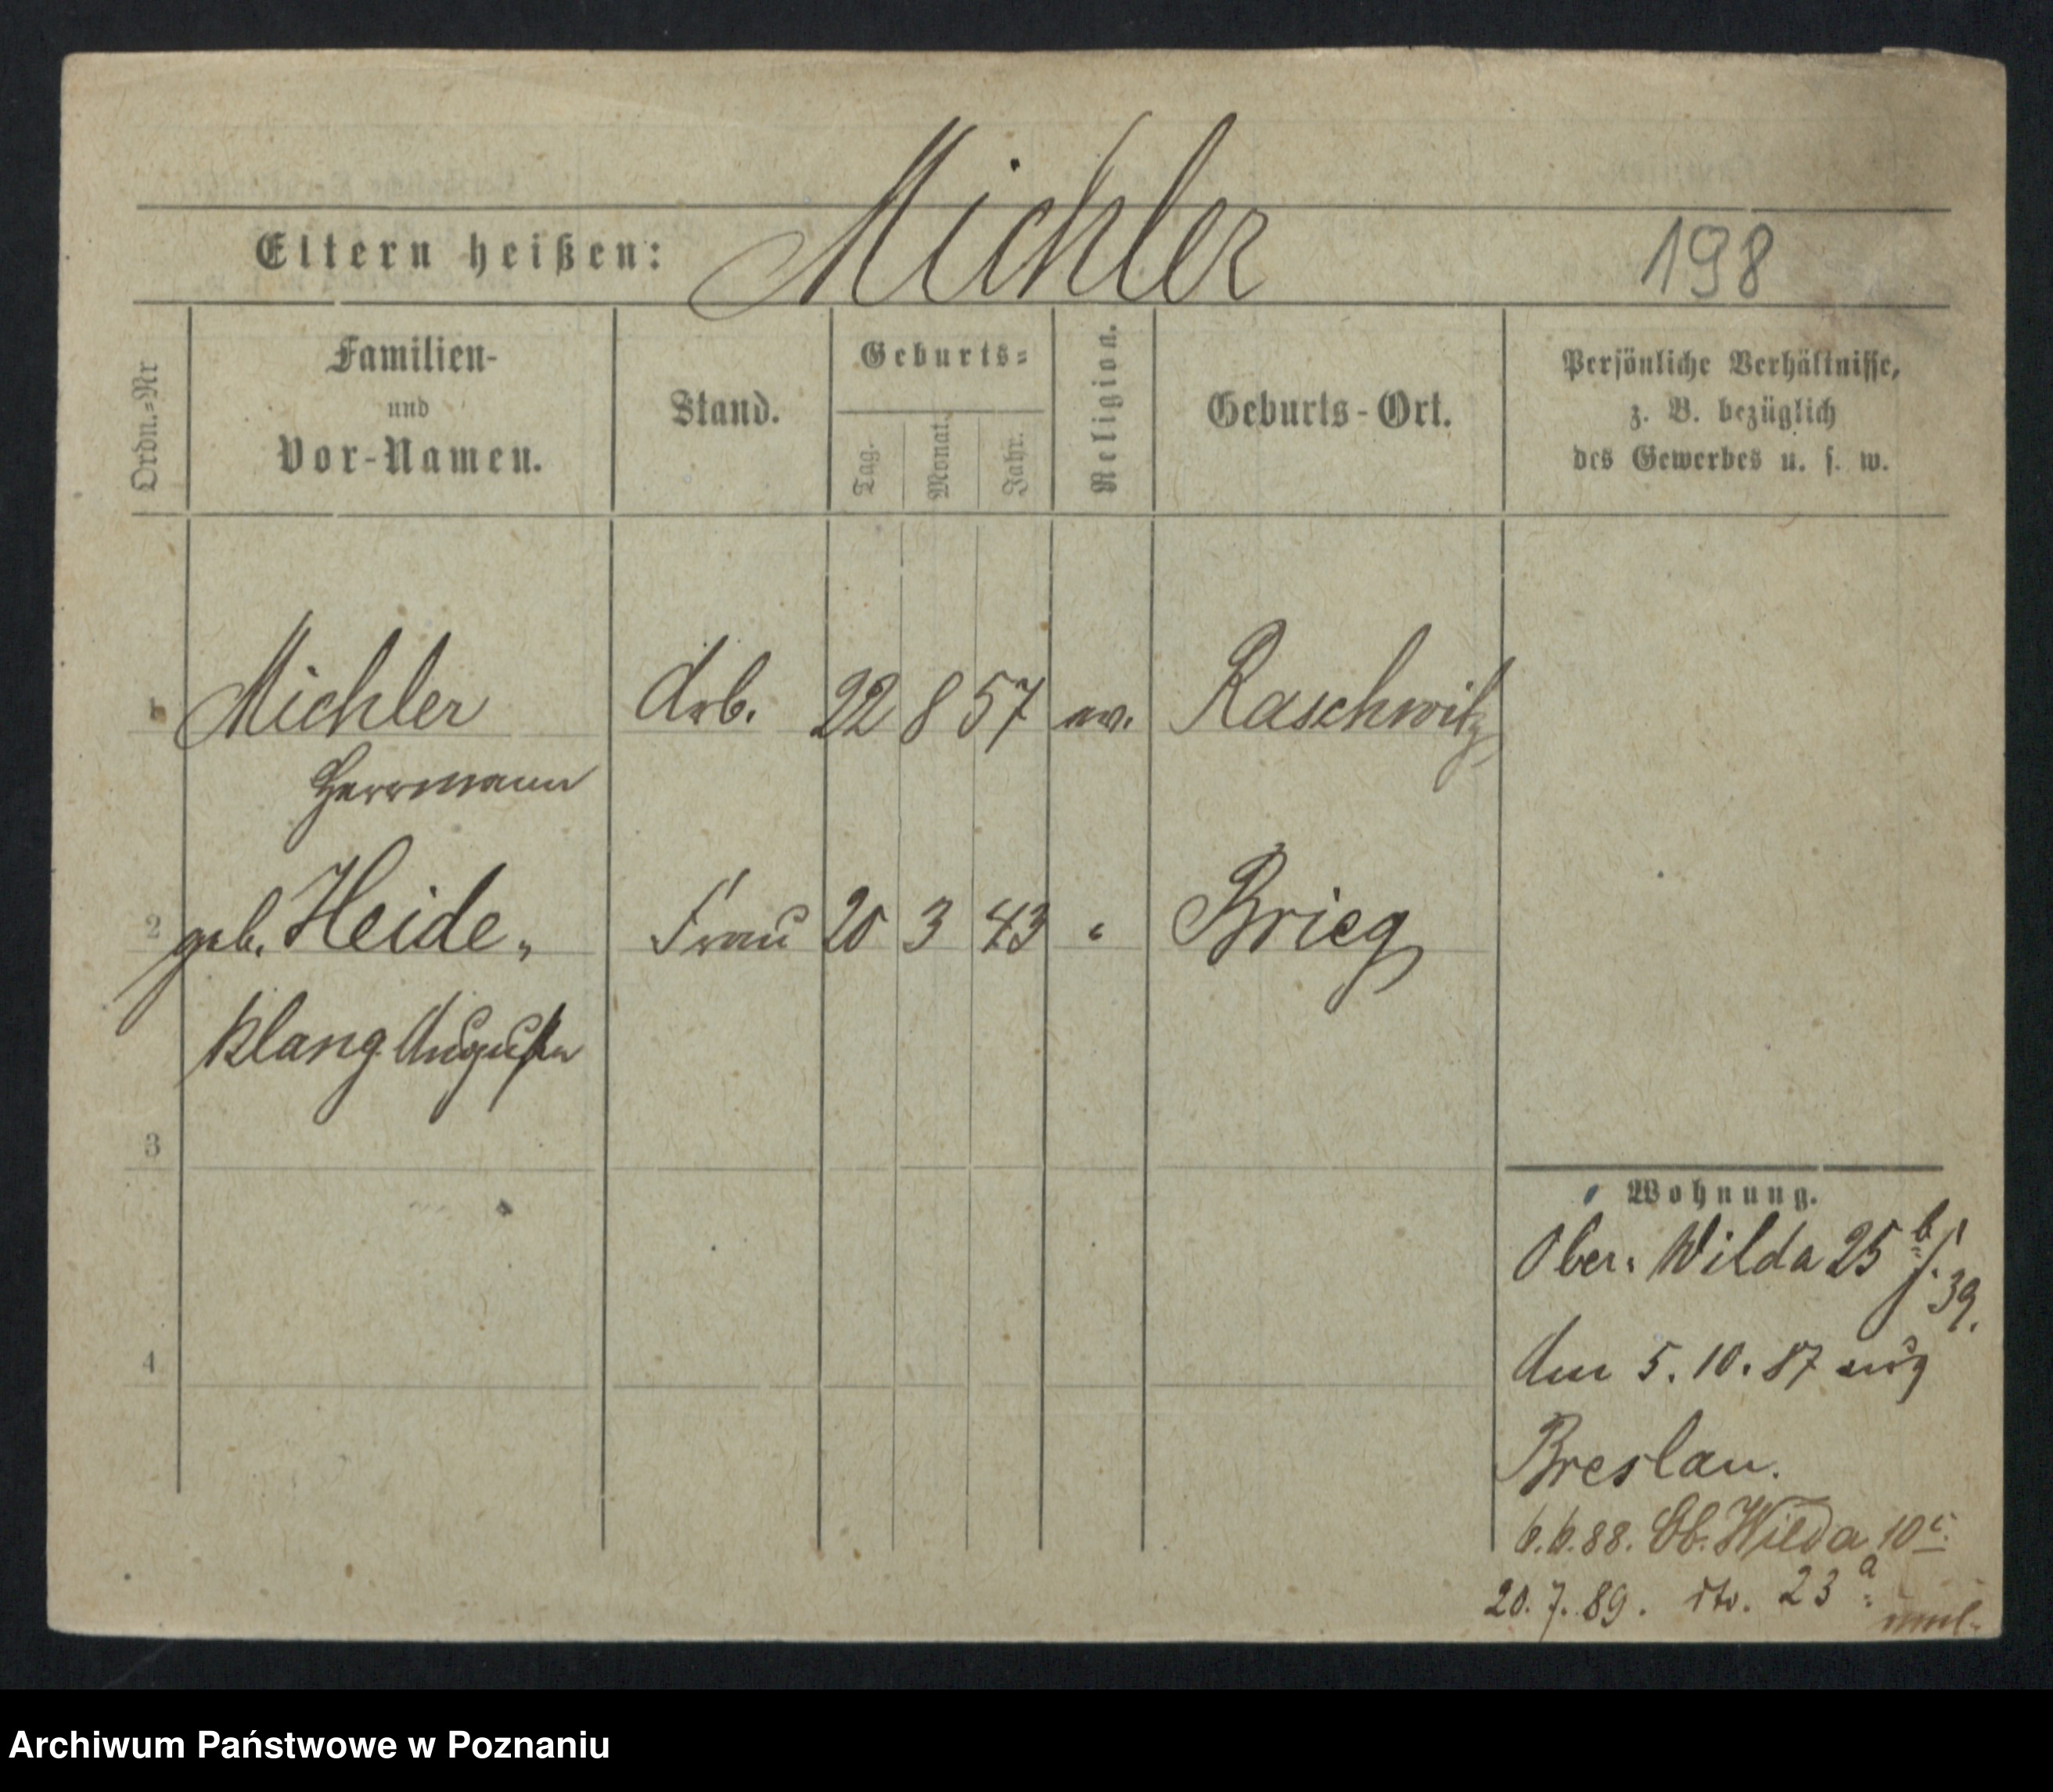 Eltern heißen: Michler 198
Ordn.=Nr
Familien-
und
Vor-Namen.
Stand.
Geburts=
Tag.
Monat.
Jahr.
Religion.
Geburts-Ort.
Persönliche Verhältnisse,
z. B. bezüglich
des Gewerbes u. s. w.
1 Michler Arb. 22 8 57 ev. Raschwitz
Herrmann
2 geb. Heide„ Frau 20 3 43 " Brieg
klang Auguste
3
4
Wohnung.
Ober. Wilda 25 b
39.
Am 5.10.87 aus
Breslau.
6.6.88. Ob. Wilda 10 c.
20.7.89. do. 23 a
Archiwum Państwowe w Poznaniu